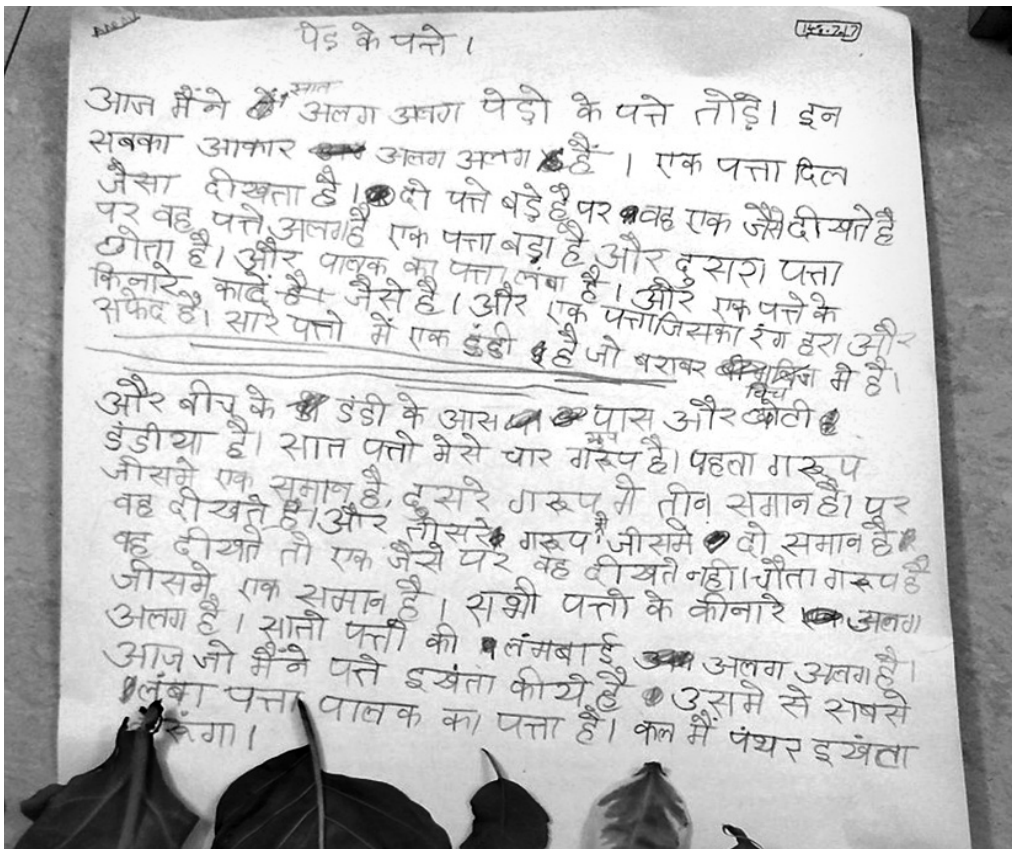 AARAV
पेड के पत्ते ।
आज मैंने सात अलग अलग पेड़ो के पत्ते तोड़े। इन
सबका आकार अलग अलग हैं । एक पत्ता दिल
जैसा दीखता है । दो पत्ते बड़े है पर वह एक जैसे दीखते है
पर वह पत्ते अलग है एक पत्ता बड़ा है और दुसरा पत्ता
छोता है। और पालक का पत्ता लंबा है । और एक पत्ते के
किनारे काटे जैसे है । और एक पत्ता जिसका रंग हरा और
सफेद है। सारे पत्तो में एक डंडी है जो बराबर बिच मे है।
और बीच के डंडी के आस पास और छोटी
डंडीया है। सात पत्तो मेसे चार गरूप है। पहला गरूप
जीसमे एक समान है, दुसरे गरूप मे तीन समान है। पर
वह दीखते है। और तीसरे गरूप है जीसमे दो समान है
वह दीखते तो एक जैसे पर वह दीखते नही। चौता गरूप है
जीसमे एक समान है । सभी पत्तो के कीनारे अलग
अलग है । सातो पत्तो की लंमबाई अलग अलग है।
आज जो मैंने पत्ते इखंता कीये है उसमे से सबसे
लंबा पत्ता पालक का पत्ता है। कल मैं पंथर इखंता
रूंगा।